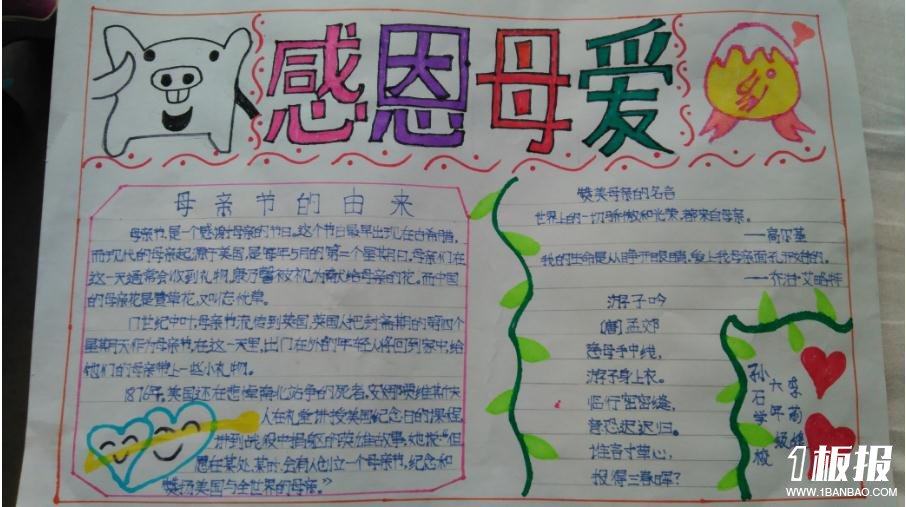 感恩母爱
母亲节的由来
母亲节,是一个感谢母亲的节日。这个节日最早出现在古希腊,
而现代的母亲起源于美国,是每年5月的第二个星期日,母亲们在
这一天通常会收到礼物,康乃馨被视为献给母亲的花。而中国
的母亲花是萱草花,又叫忘忧草。
17世纪中叶,母亲节流传到英国,英国人把封斋期的第四个
星期天作为母亲节,在这一天里,出门在外的年轻人将回到家中,给
他们的母亲带上一些小礼物。
1876年,美国还在悲悼南北战争的死者,安娜·
人在礼堂讲授美国纪念日的课程,
讲到战役中捐躯的英雄故事,她说:“但
愿在某处,某时,会有人创立一个母亲节,纪念和
赞扬美国与全世界的母亲。”
赞美母亲的名言
世界上的一切骄傲和光荣,都来自母亲。
——高尔基
我的生命是从睁开眼睛,爱上我母亲面孔开始的。
——乔治·艾略特
游子吟
[唐]孟郊
慈母手中线,
游子身上衣。
临行密密缝,
意恐迟迟归。
谁言寸草心,
报得三春晖?
孙石学校
六年级
李
1板报
WWW.1BANBAO.COM